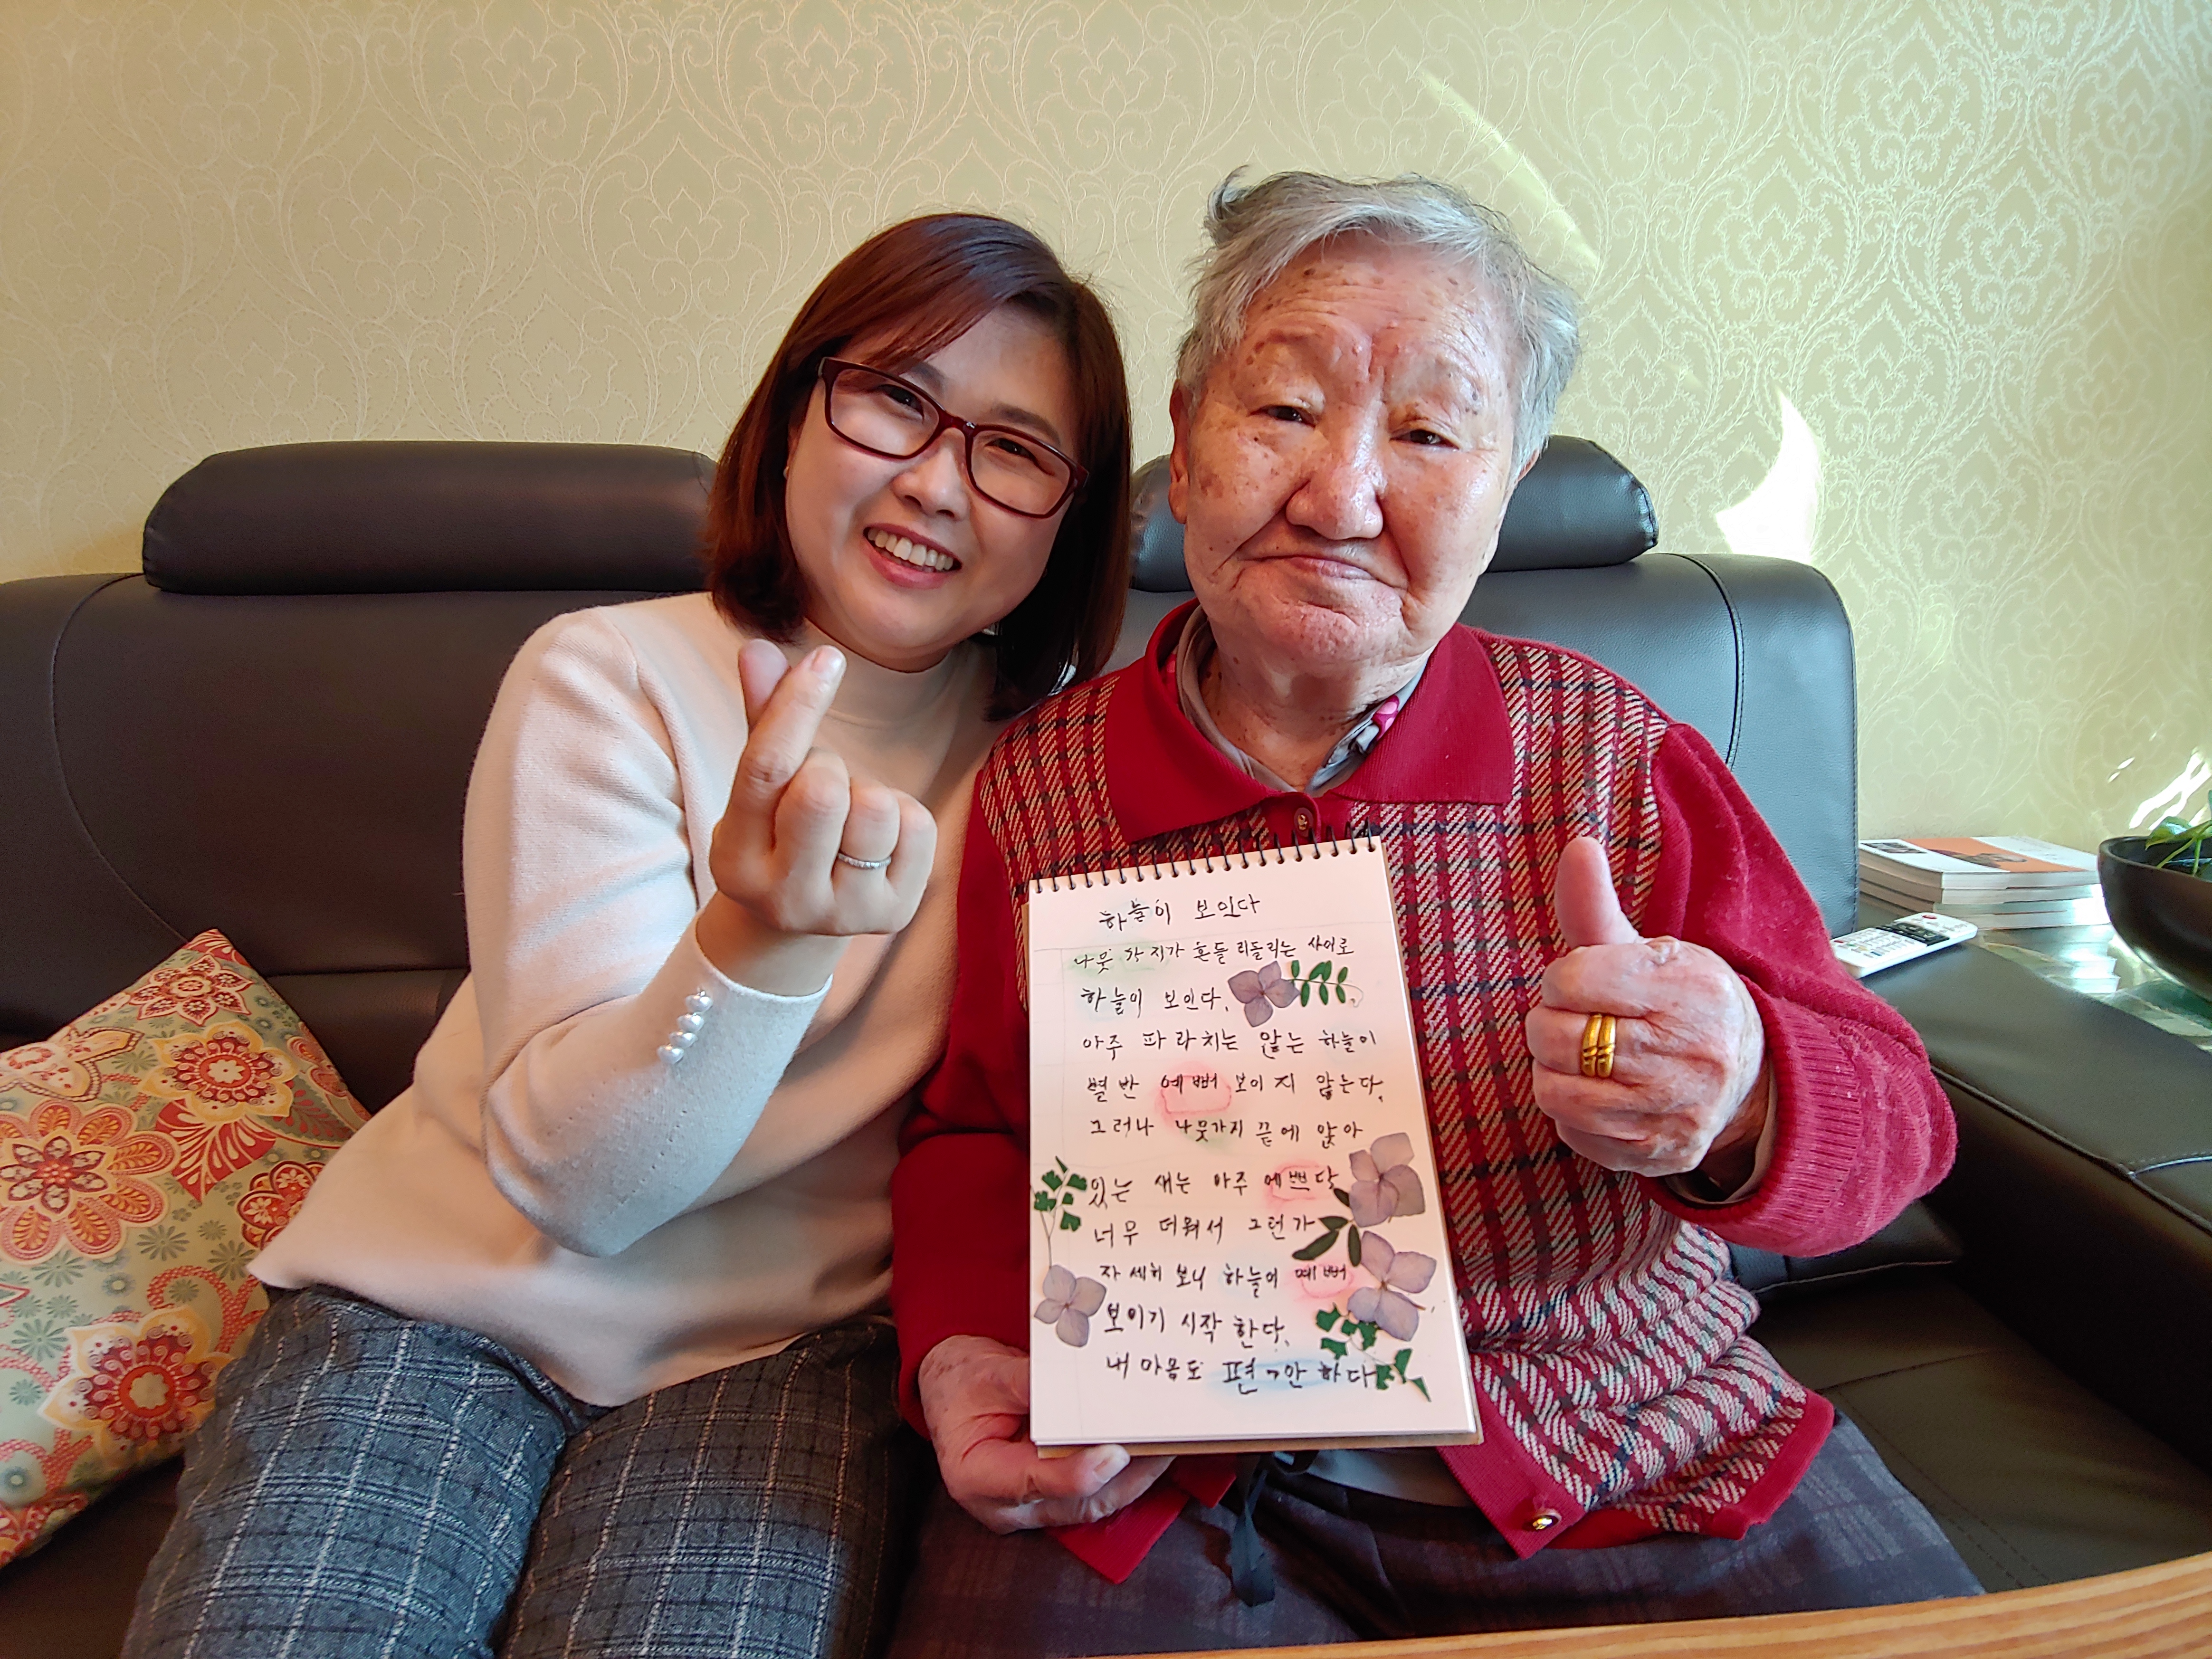 하늘이 보인다
나뭇 가지가 흔들 리들리는 사이로
하늘이 보인다.
아주 파라치는 않는 하늘이
별반 예뻐 보이지 않는다.
그러나 나뭇가지 끝에 앉아
있는 새는 아주 예쁘다
너무 더워서 그런가
자세히 보니 하늘이 예뻐
보이기 시작 한다.
내 마음도 편안 하다